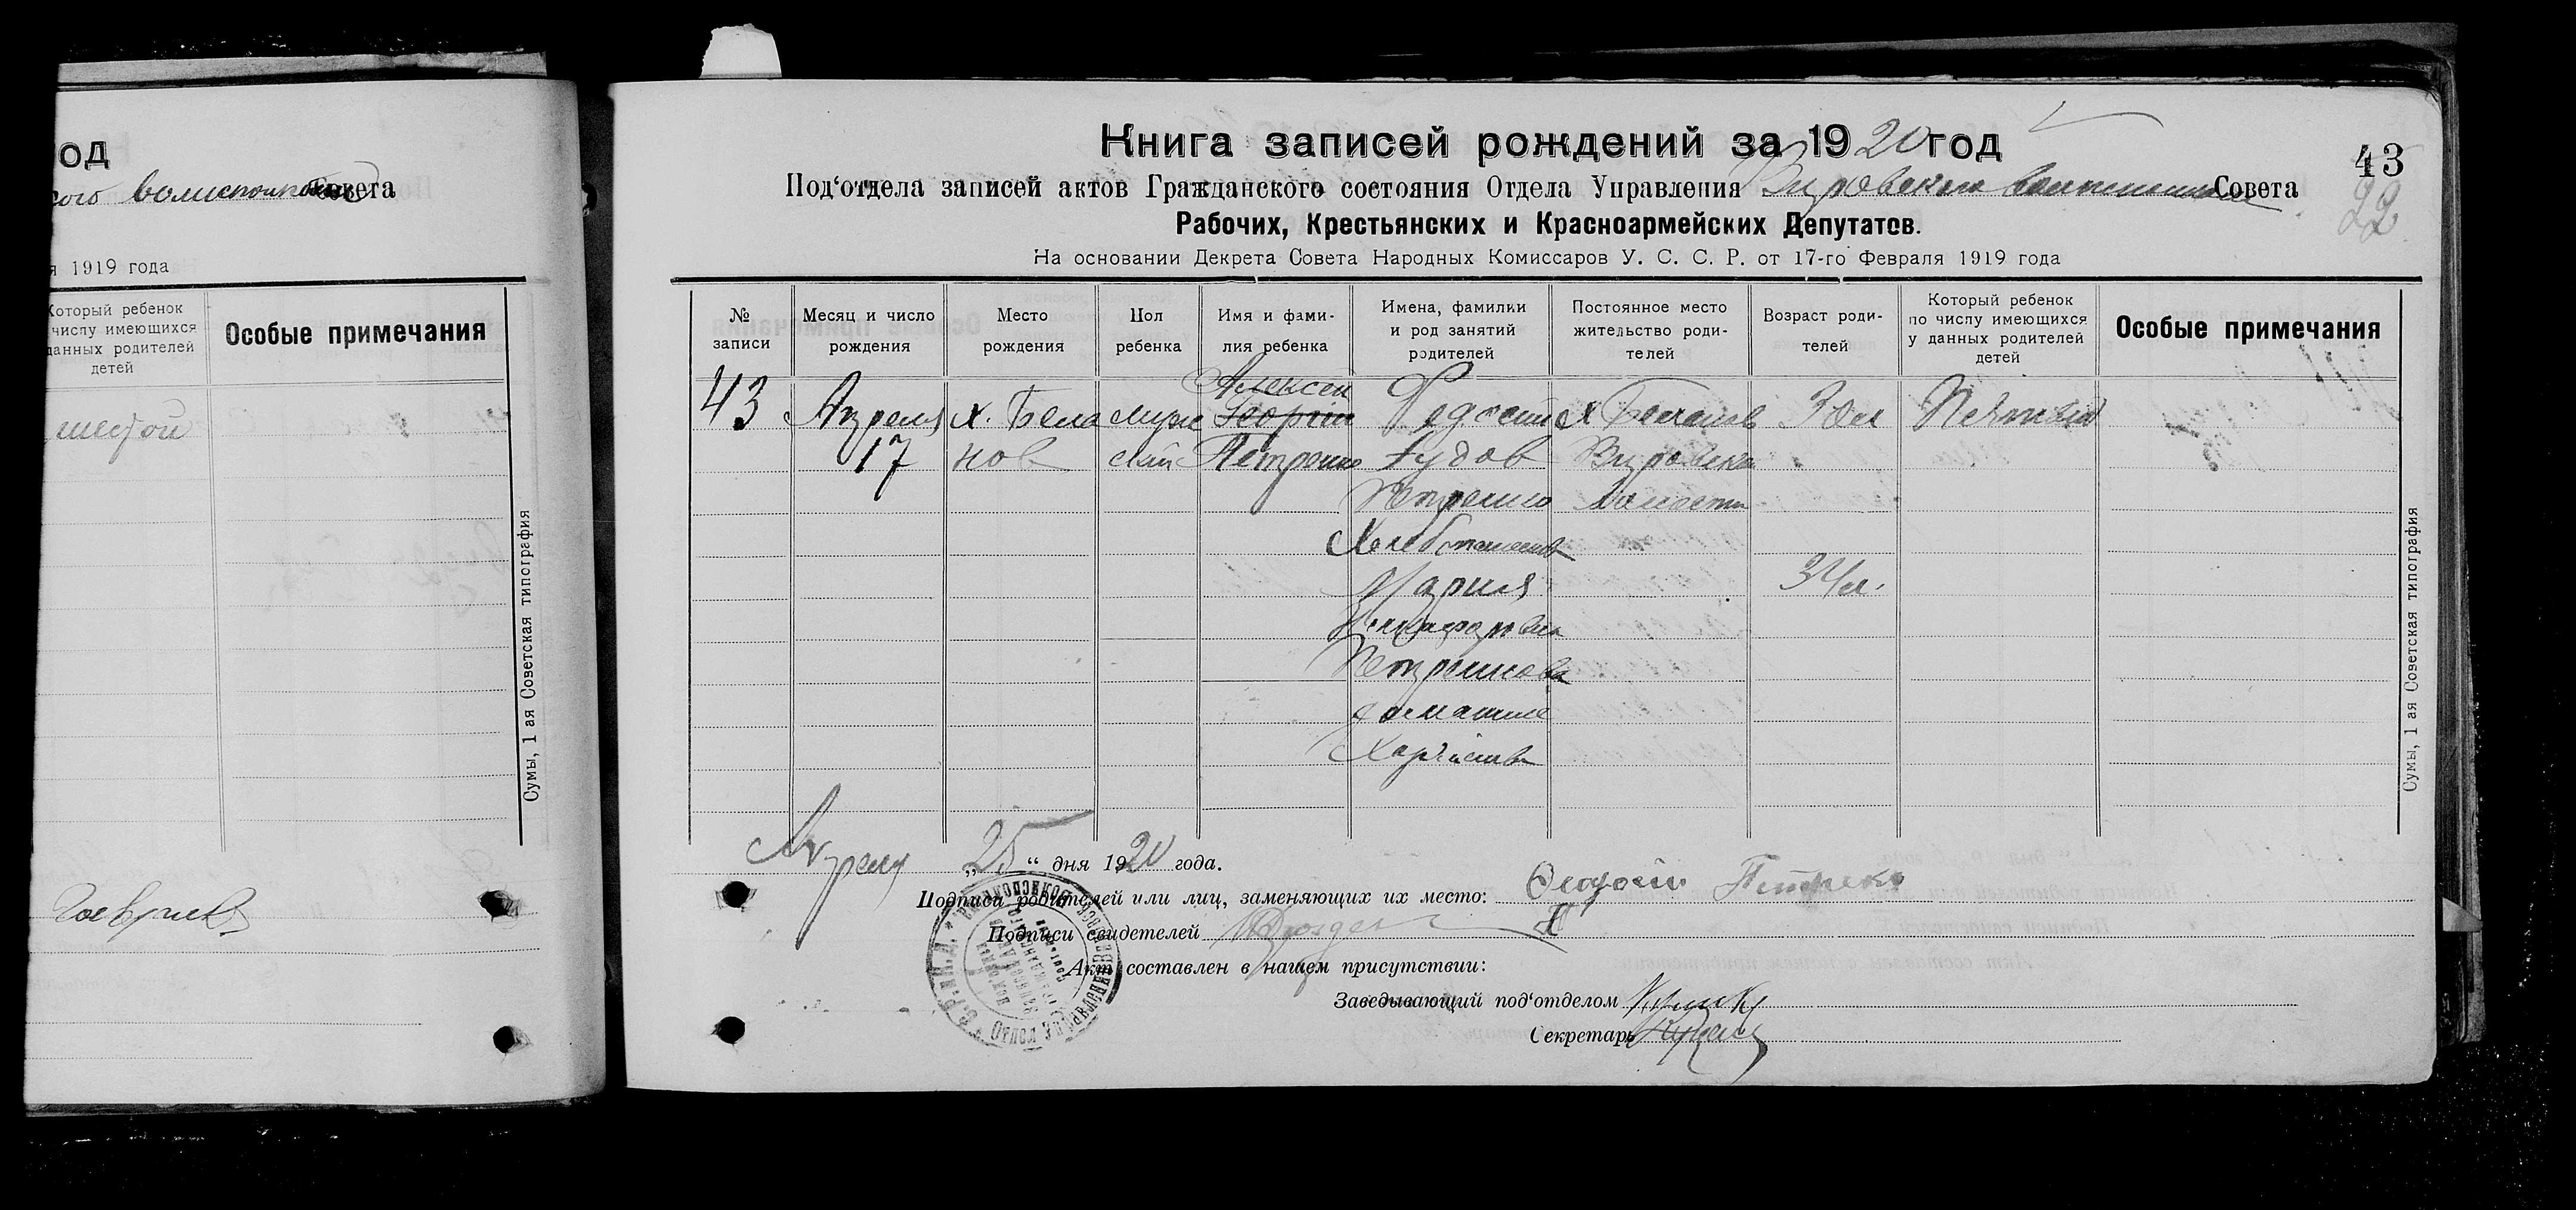 од
кого волисполкома Совета
я 1919 года
Который ребенок
числу имеющихся
данных родителей
детей
Особые примечания
шестой
Сумы, 1 ая Советская типография
Книга записей рождений за 1920 год
43
Под‘отдела записей актов Гражданского состояния Отдела Управления Вировского Совета
22
Рабочих, Крестьянских и Красноармейских Депутатов.
На основании Декрета Совета Народных Комиссаров У. С. С. Р. от 17-го Февраля 1919 года
№ записи
Месяц и число рождения
Место рождения
Пол ребенка
Имя и фами-
лия ребенка
Имена, фамилии
и род занятий
родителей
Постоянное место
жительство роди-
телей
Возраст роди-
телей
Который ребенок
по числу имеющихся
у данных родителей
детей
Особые примечания
43
Апреля
17
х. Бела
нов
муж
ский
Алексей
Георгий
Петренко
Федосий
Петренко
Мария
Никифоровна
Петренкова
домашнее
х Беланов
Вировская
волости
34 л.
Пятый
Сумы, 1 ая Советская типография
Апреля „25“ дня 1920 года.
Подписи родителей или лиц, заменяющих их место: Федосий Петренко
Подписи свидетелей
Акт составлен в нашем присутствии:
Заведывающий под‘отделом
Секретарь